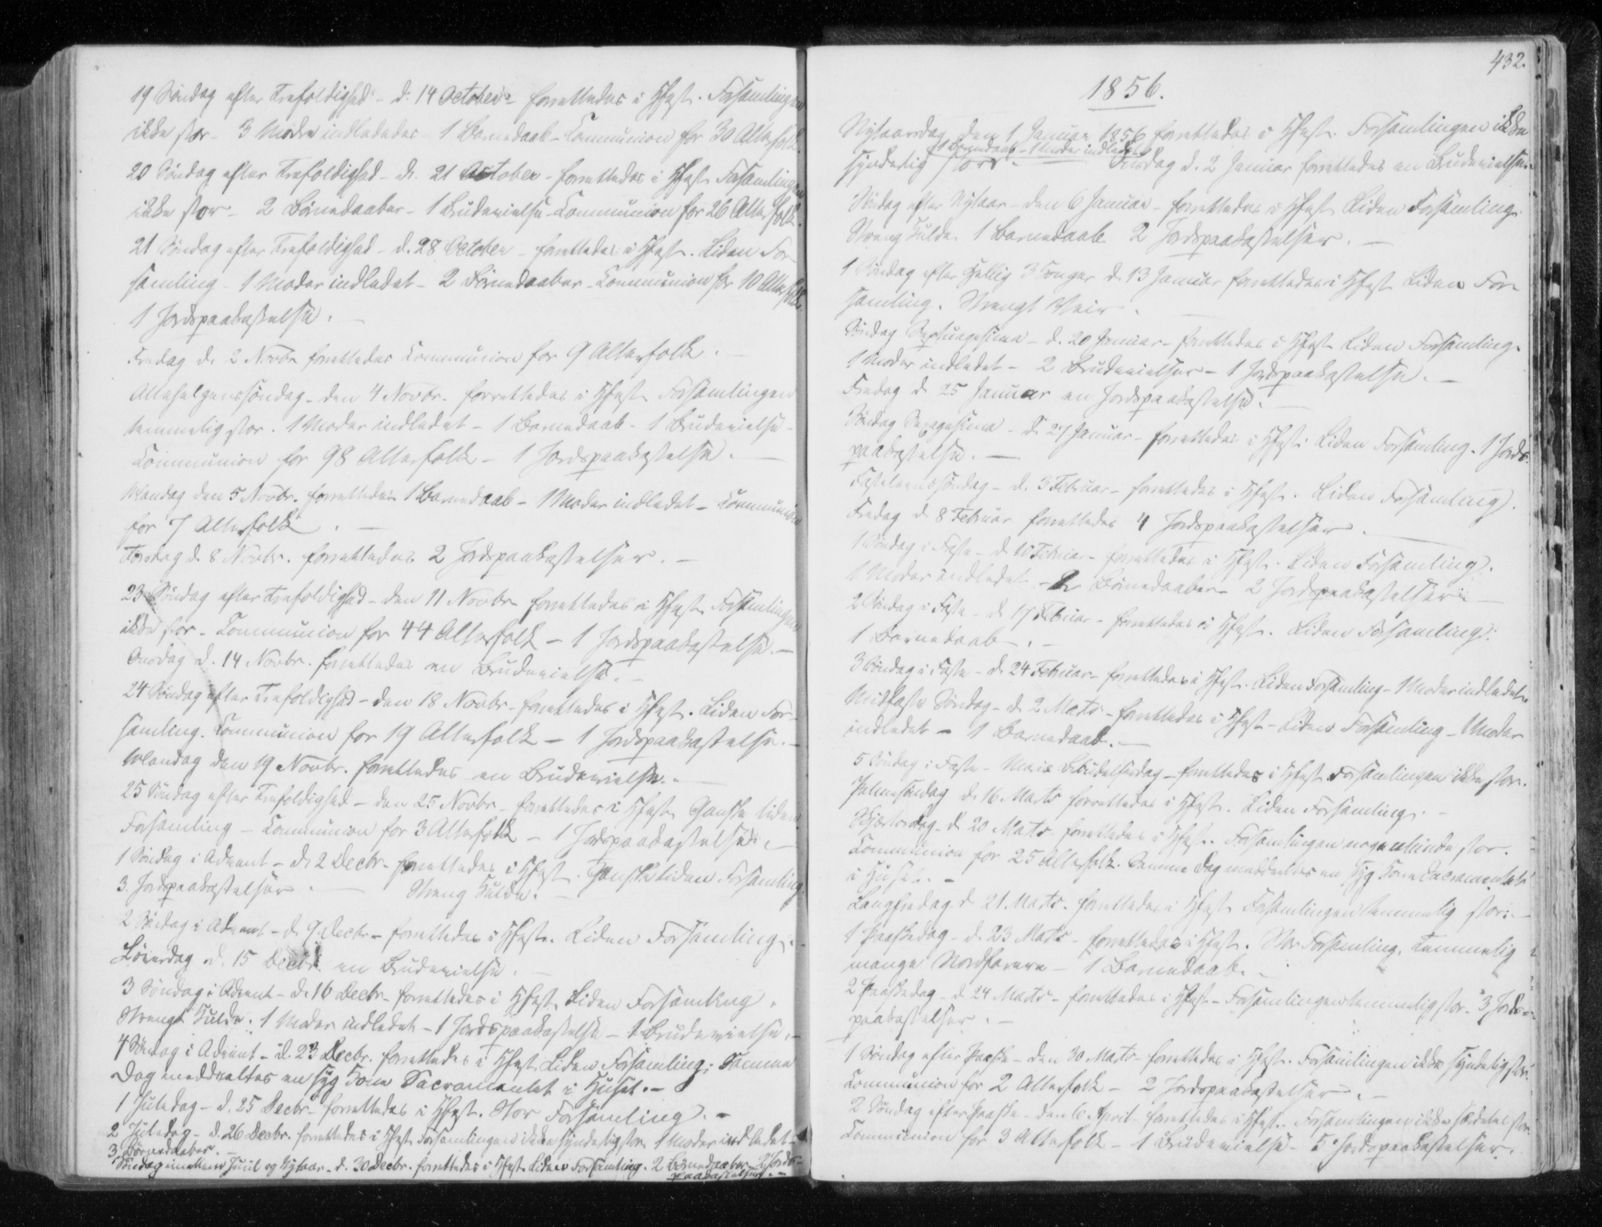 19 Søndag efter Trefoldighed - d. 14 October forrettedes i Hfest. Forsamlingen
ikke stor - 3 Mødre indledede - 1 Barnedaab - Communion for 30 Alterfolk.
20 Søndag efter Trefoldighed - d. 21 October - forrettedes i Hfest. Forsamlingen
ikke stor - 2 Børnedaaber - 1 Brudevielse - Communion for 26 Alterfolk.
21 Søndag efter Trefoldighed - d. 28 October - forrettedes i Hfest. Liden For-
samling - 1 Moder indledet - 2 Børnedaaber - Communion for 10 Alterfolk
1 Jordspaakastelse. -
Fredag d. 2 Novbr forrettedes Communion for 9 Alterfolk. -
Allehelgenssøndag - den 4 Novbr. forrettedes i Hfest. Forsamlingen
temmelig stor. 1 Moder indledet - 1 Barnedaab - 1 Brudevielse -
Communion for 98 Alterfolk - 1 Jordspaakastelse. -
Mandag den 5 Novbr. forrettedes 1 Barnedaab - 1 Moder indledet - Communion
for 7 Alterfolk. -
Torsdag d. 8 Novbr. forrettedes 2 Jordspaakastelser. -
23 Søndag efter Trefoldighed - den 11 Novbr forrettedes i Hfest. Forsamlingen
ikke stor - Communion for 44 Alterfolk - 1 Jordspaakastelse. -
Onsdag d. 14 Novbr. forrettedes en Brudevielse. -
24 Søndag efter Trefoldighed - den 18 Novbr - forrettedes i Hfest. Liden For-
samling. Communion for 19 Alterfolk - 1 Jordspaakastelse. -
Mandag den 19 Novbr. forrettedes en Brudevielse. -
25 Søndag efter Trefoldighed - den 25 Novbr - forrettedes i Hfest. Ganske liden
Forsamling - Communion for 3 Alterfolk - 1 Jordspaakastelse. -
1 Søndag i Advent - d. 2 Decbr - forrettedes i Hfest. Ganske liden Forsamling
3 Jordspaakastelser. - Streng Kulde. -
2 Søndag i Advent - d. 9 Decbr - forrettedes i Hfest. Liden Forsamling. -
Løverdag d. 15 Decbr en Brudevielse. -
3 Søndag i Advent - d. 16 Decbr - forrettedes i Hfest. Liden Forsamling.
Streng Kulde. 1 Moder indledet - 1 Jordspaakastelse - 1 Brudevielse. -
4 Søndag i Advent - d. 23 Decbr. forrettedes i Hfest. Liden Forsamling. Samme
Dag meddeeltes en syg Kone Sacramentet i Huset. -
1 Juledag - d. 25 Decbr - forrettedes i Hfest. Stor Forsamling. -
2 Juledag - d. 26 Decbr. forrettedes i Hfest. Forsamlingen ikke synderlig stor. 1 Moder indledet -
3 Børnedaaber. -
Søndag imellem Juul og Nytaar - d. 30 Decbr. forrettedes i Hfest. Liden Forsamling. 2 Børnedaaber - 2 Jords-
paakastelser. -
432.
1856.
Nytaarsdag den 1 Januar 1856 forrettedes i Hfest. Forsamlingen ikke
synderlig stor. 1 Barnedaab - 1 Moder indledet. Onsdag d. 2 Januar forrettedes en Brudevielse. -
Søndag efter Nytaar - den 6 Januar - forrettedes i Hfest. Liden Forsamling.
Streng Kulde. 1 Barnedaab. 2 Jordspaakastelser. -
1 Søndag efter Hellig 3 Konger d. 13 Januar forrettedes i Hfest. Liden For-
samling. Strengt Veir. -
Søndag Septuagesima - d. 20 Januar - forrettedes i Hfest. Liden Forsamling.
1 Moder indledet - 2 Brudevielser - 1 Jordspaakastelse. -
Fredag d. 25 Januar en Jordspaakastelse. -
Søndag Sexagesima - d. 27 Januar - forrettedes i Hfest. Liden Forsamling. 1 Jords-
paakastelse. -
Fastelavnssøndag - d. 3 Februar - forrettedes i Hfest. Liden Forsamling.
Fredag d. 8 Februar forrettedes 4 Jordspaakastelser. -
1 Søndag i Faste - d. 10 Februar - forrettedes i Hfest. Liden Forsamling.
1 Moder indledet - 2 Børnedaaber - 2 Jordspaakastelser. -
2 Søndag i Faste - d. 17 Februar - forrettedes i Hfest. Liden Forsamling.
1 Barnedaab. -
3 Søndag i Faste - d. 24 Februar - forrettedes i Hfest. Liden Forsamling - 1 Moder indledet.
Midfaste Søndag - d. 2 Marts - forrettedes i Hfest - Liden Forsamling - 1 Moder
indledet - 1 Barnedaab. -
5 Søndag i Faste - Mariæ Bebudelsesdag - forrettedes i Hfest. Forsamlingen ikke stor.
Palmesøndag d. 16 Marts forrettedes i Hfest. Liden Forsamling. -
Skjærtorsdag - d. 20 Marts forrettedes i Hfest. Forsamlingen stor.
Communion for 25 Alterfolk. Samme Dag meddeeltes en syg Kone Sacramentet
i Huset. -
Langfredag d. 21 Marts. forrettedes i Hfest. Forsamlingen temmelig stor. -
1 Paaskedag - d. 23 Marts - forrettedes i Hfest. Stor Forsamling, temmelig
mange Nordfarere - 1 Barnedaab. -
2 Paaskedag - d. 24 Marts - forrettedes i Hfest - Forsamlingen temmelig stor. 3 Jords-
paakastelser. -
1 Søndag efter Paaske - den 30 Marts forrettedes i Hfest. Forsamlingen ikke synderlig stor.
Communion for 2 Alterfolk - 2 Jordspaakastelser. -
2 Søndag efter Paaske - den 6 April - forrettedes i Hfest. Forsamlingen ikke stor
Communion for 3 Alterfolk - 1 Brudevielse - 5 Jordspaakastelser.